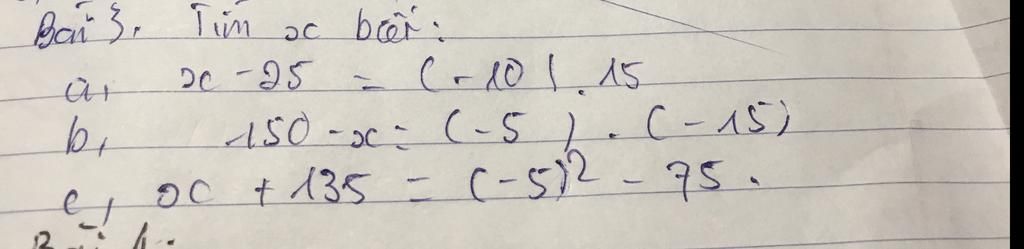 Bài 3. Tìm x biết:
a, x - 25 = (-10). 15
b, 150 - x = (-5). (-15)
c, x + 135 = (-5)² - 75.